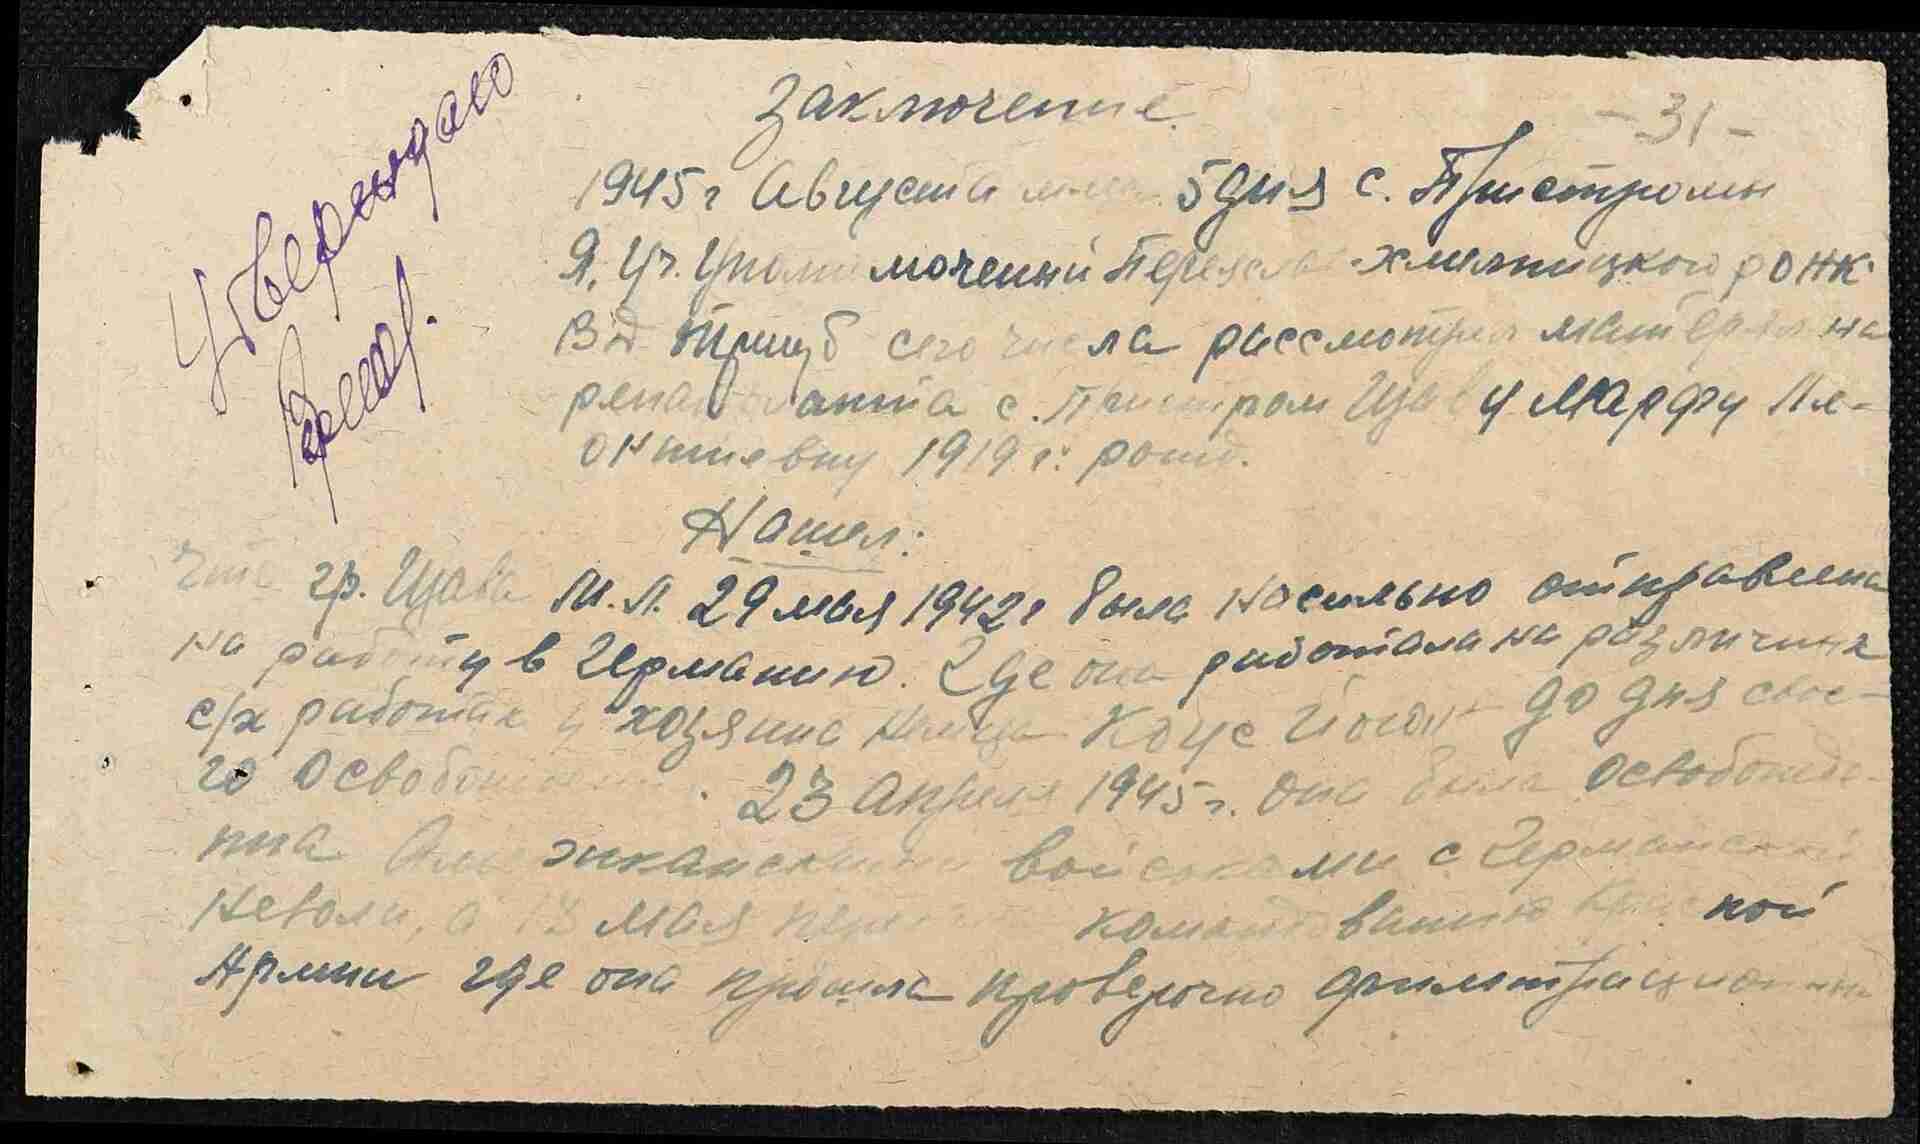 Утверждаю
Заключение.
-31-
1945 г Августа мец. 5 дня с. Пристромы
Я, Уч. Уполномоченный Переяслав-Хмельницкого РОНК
ВД сего числа рассмотрел материал на
репатрианта с. Пристром Щаву Марфу Ле-
онтиевну 1919 г. рожд.
Нашел:
Что гр. Щава М.Л. 29 мая 1942 г была насильно отправлена
на работу в Германию. Где она работала на различных
с/х работах у хозяина немца Коус Йоган до дня свое-
го освобождения. 23 апреля 1945 г. она была освобожде-
нна Американскими войсками с Германской
неволи, а 13 мая командованию Красной
Армии где она прошла проверочно фильтрационный